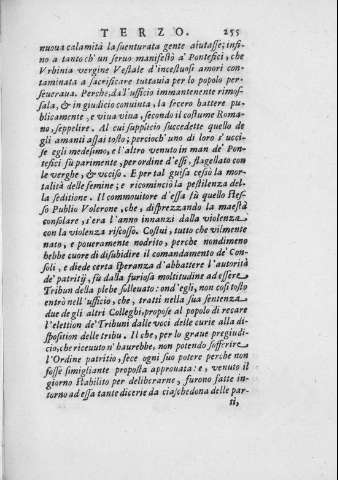 TERZO. 255
nuoua calamità la suenturata gente aiutasse; insi-
no a tanto ch' un seruo manifestò a' Pontefici, che
Vrbinia vergine Vestale d'incestuosi amori con-
taminata a sacrificare tuttauia per lo popolo per-
seueraua. Perche, dall'ufficio immantenente rimos-
sala, & in giudicio conuinta, la fecero battere pu-
blicamente, e viua viua, secondo il costume Roma-
no, seppelire. Al cui supplicio succedette quello de
gli amanti assai tosto; percioch' uno di loro s'ucci-
se egli medesimo, e l'altro venuto in man de' Pon-
tefici fù parimente, per ordine d'essi, flagellato con
le verghe, & vcciso. E per tal guisa cessò la mor-
talità delle femine; e ricominciò la pestilenza del-
la seditione. Il commouitore d'essa fù quello stes-
so Publio Volerone, che, disprezzando la maestà
consolare, s'era l'anno innanzi dalla violenza
con la violenza riscosso. Costui, tutto che vilmente
nato, e poueramente nodrito, perche nondimeno
hebbe cuore di disubidire il comandamento de' Con-
soli, e diede certa speranza d'abbattere l'autorità
de' patritij, fù dalla furiosa moltitudine ad essere
Tribun della plebe solleuato: ond' egli, non così tosto
entrò nell'ufficio, che, tratti nella sua sentenza
due de gli altri Colleghi, propose al popolo di recare
l'elettion de' Tribuni dalle voci delle curie alla di-
sposition delle tribu. Il che, per lo graue pregiudi-
cio, che riceuuto n'haurebbe, non potendo sofferire
l'Ordine patritio, fece ogni suo potere perche non
fosse simigliante proposta approuata: e, venuto il
giorno stabilito per deliberarne, furono fatte in-
torno ad essa tante dicerie da ciaschedona delle par-
ti,